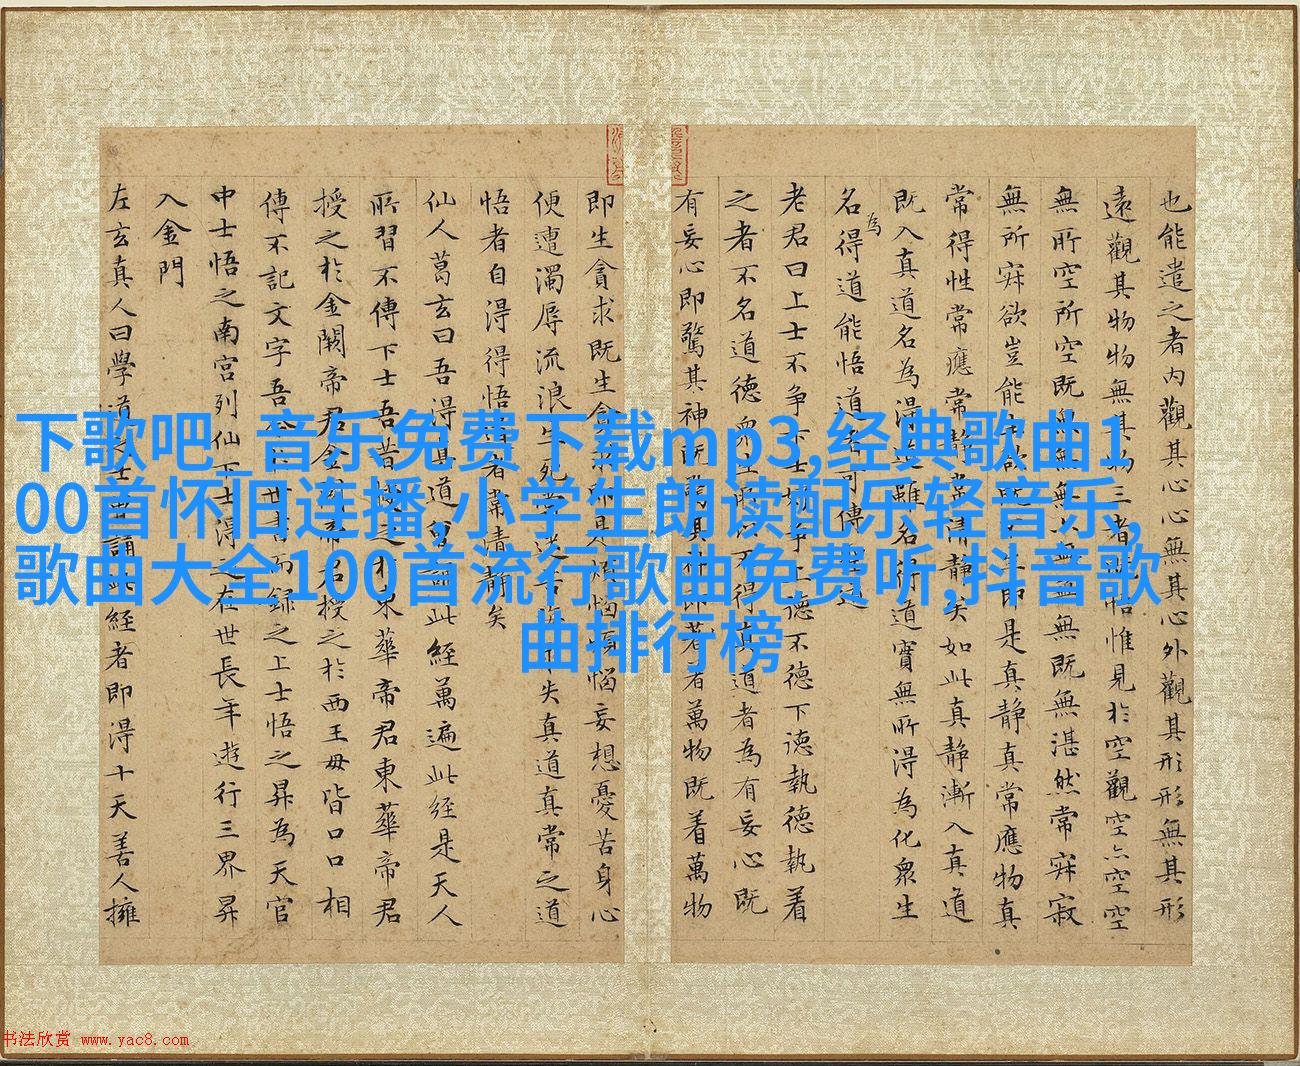 下歌吧_音乐免费下载mp3,经典歌曲1
00首怀旧连播,小学生朗读配乐轻音乐,
歌曲大全100首流行歌曲免费听,抖音歌
曲排行榜
也能遣之者內觀其心心無其心外觀其形形無其形
遠觀其物物無其物三者既悟惟見於空觀空亦空空
無所空所空既無無無亦無無無既無湛然常寂寂
無所寂欲豈能生欲既不生即是真靜真常應物真
常得性常應常靜常清靜矣如此真靜漸入真道
既入真道名為得道雖名得道實無所得為化眾生
名為得道能悟道者可傳聖道
老君曰上士不爭下士好爭上德不德下德執德執着
之者不名道德眾生所以不得真道者為有妄心既
有妄心即驚其神既驚其神即著萬物既着萬物
即生貪求既生貪求即是煩惱煩惱妄想憂苦身心
便遭濁辱流浪生死常沉苦海永失真道真常之道
悟者自得得悟道者常清靜矣
仙人葛玄曰吾得真道曾誦此經萬遍此經是天人
所習不傳下士吾昔授之於東華帝君東華帝君
授之於金闕帝君金闕帝君授之於西王母皆口口相
傳不記文字吾今於世書而錄之上士悟之昇為天官
中士悟之南宮列仙下士得之在世長年遊行三界昇
入金門
左玄真人曰學道之士持誦此經者即得十天善人擁
书法欣赏 www.yac8.com